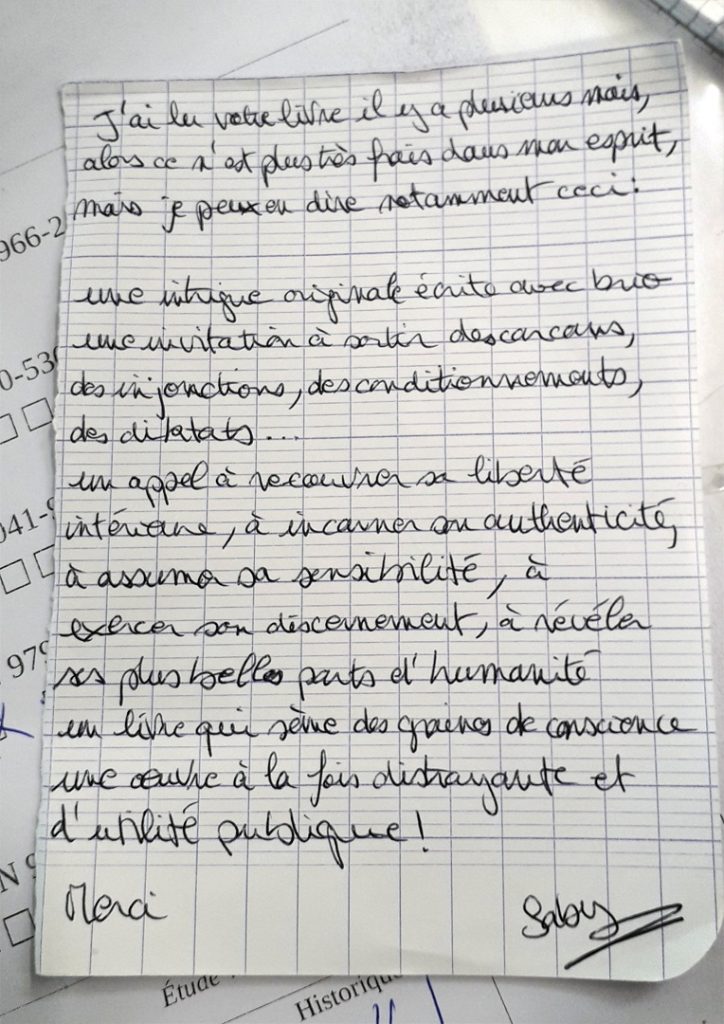 J'ai lu votre livre il y a plusieurs mois,
alors ce n'est plus très frais dans mon esprit,
mais je peux en dire notamment ceci :
une intrigue originale écrite avec brio
une invitation à sortir des carcans,
des injonctions, des conditionnements,
des diktats...
un appel à recouvrer sa liberté
intérieure, à incarner son authenticité,
à assumer sa sensibilité, à
exercer son discernement, à révéler
ses plus belles parts d'humanité
un livre qui sème des graines de conscience
une œuvre à la fois distrayante et
d'utilité publique !
Merci
Saby
966-2
0-530
041-9
979
N 9
Étude
Historique